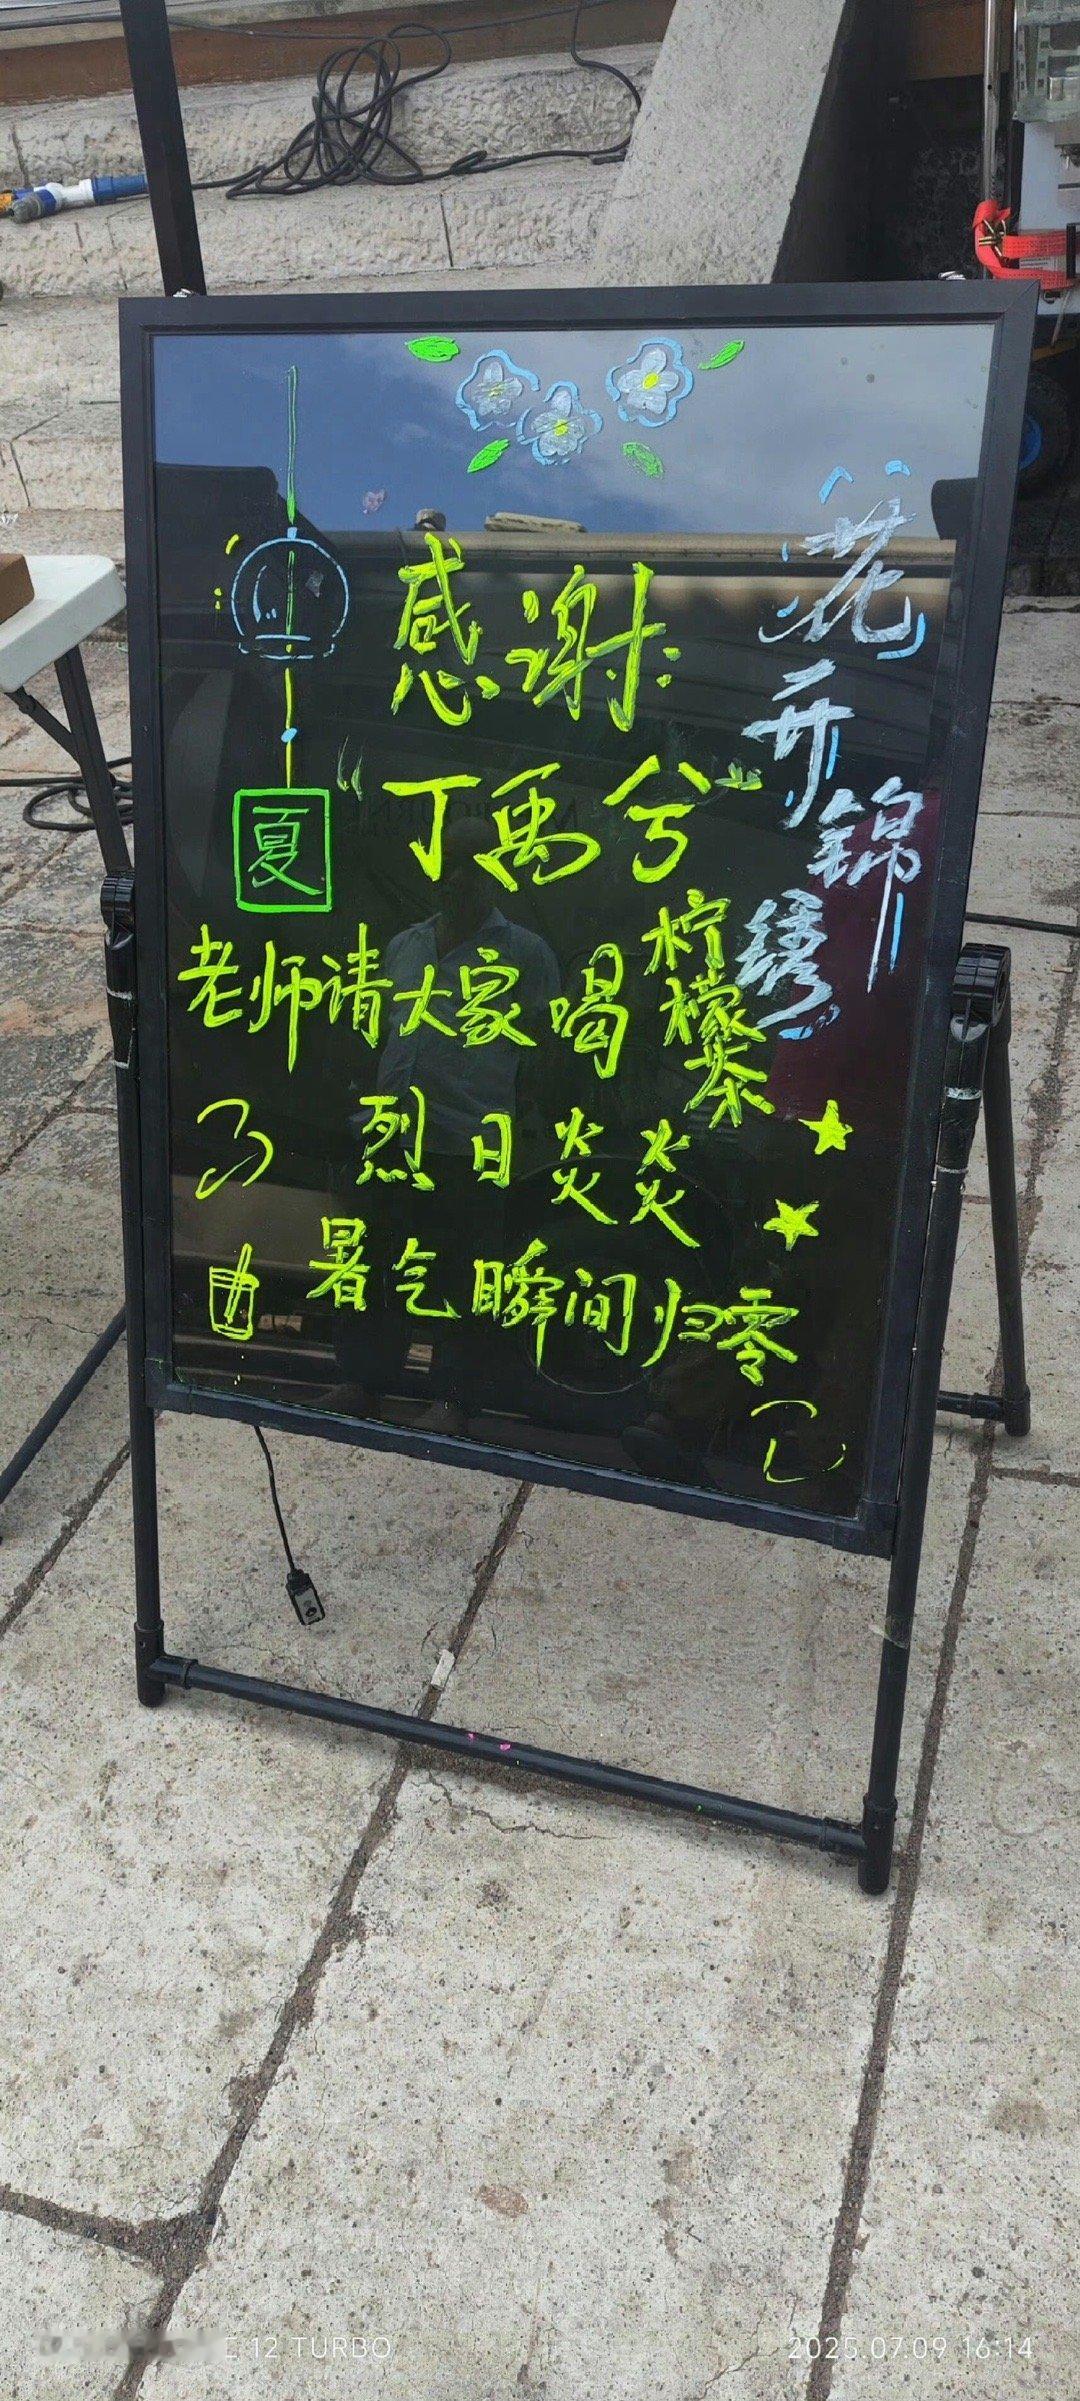 感谢:
“丁禹兮”
老师请大家喝柠檬茶
烈日炎炎
暑气瞬间归零
花开锦绣
夏
12 TURBO
2025.07.09 16:14